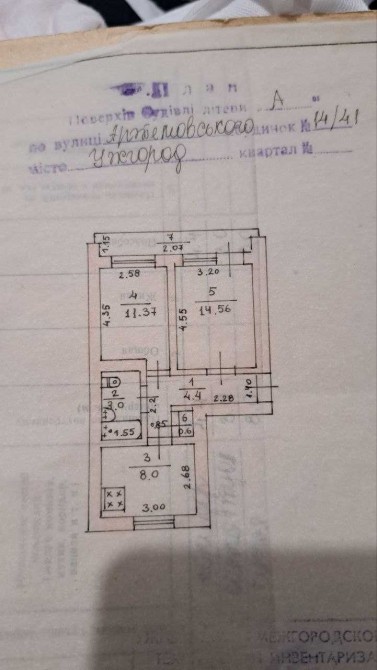 План
Поверхів будівлі літери А
по вулиці Артемовського будинок № 14/41
місто Ужгород квартал №
7
2.07
1.15
2.58
3.20
4
11.37
4.35
5
14.56
4.55
1
4.4
2.28
1.40
2
3.0
2.2
1.55
0.85
6
0.6
3
8.0
2.68
3.00
МЕЖГОРОДСКО
ИНВЕНТАРИЗА